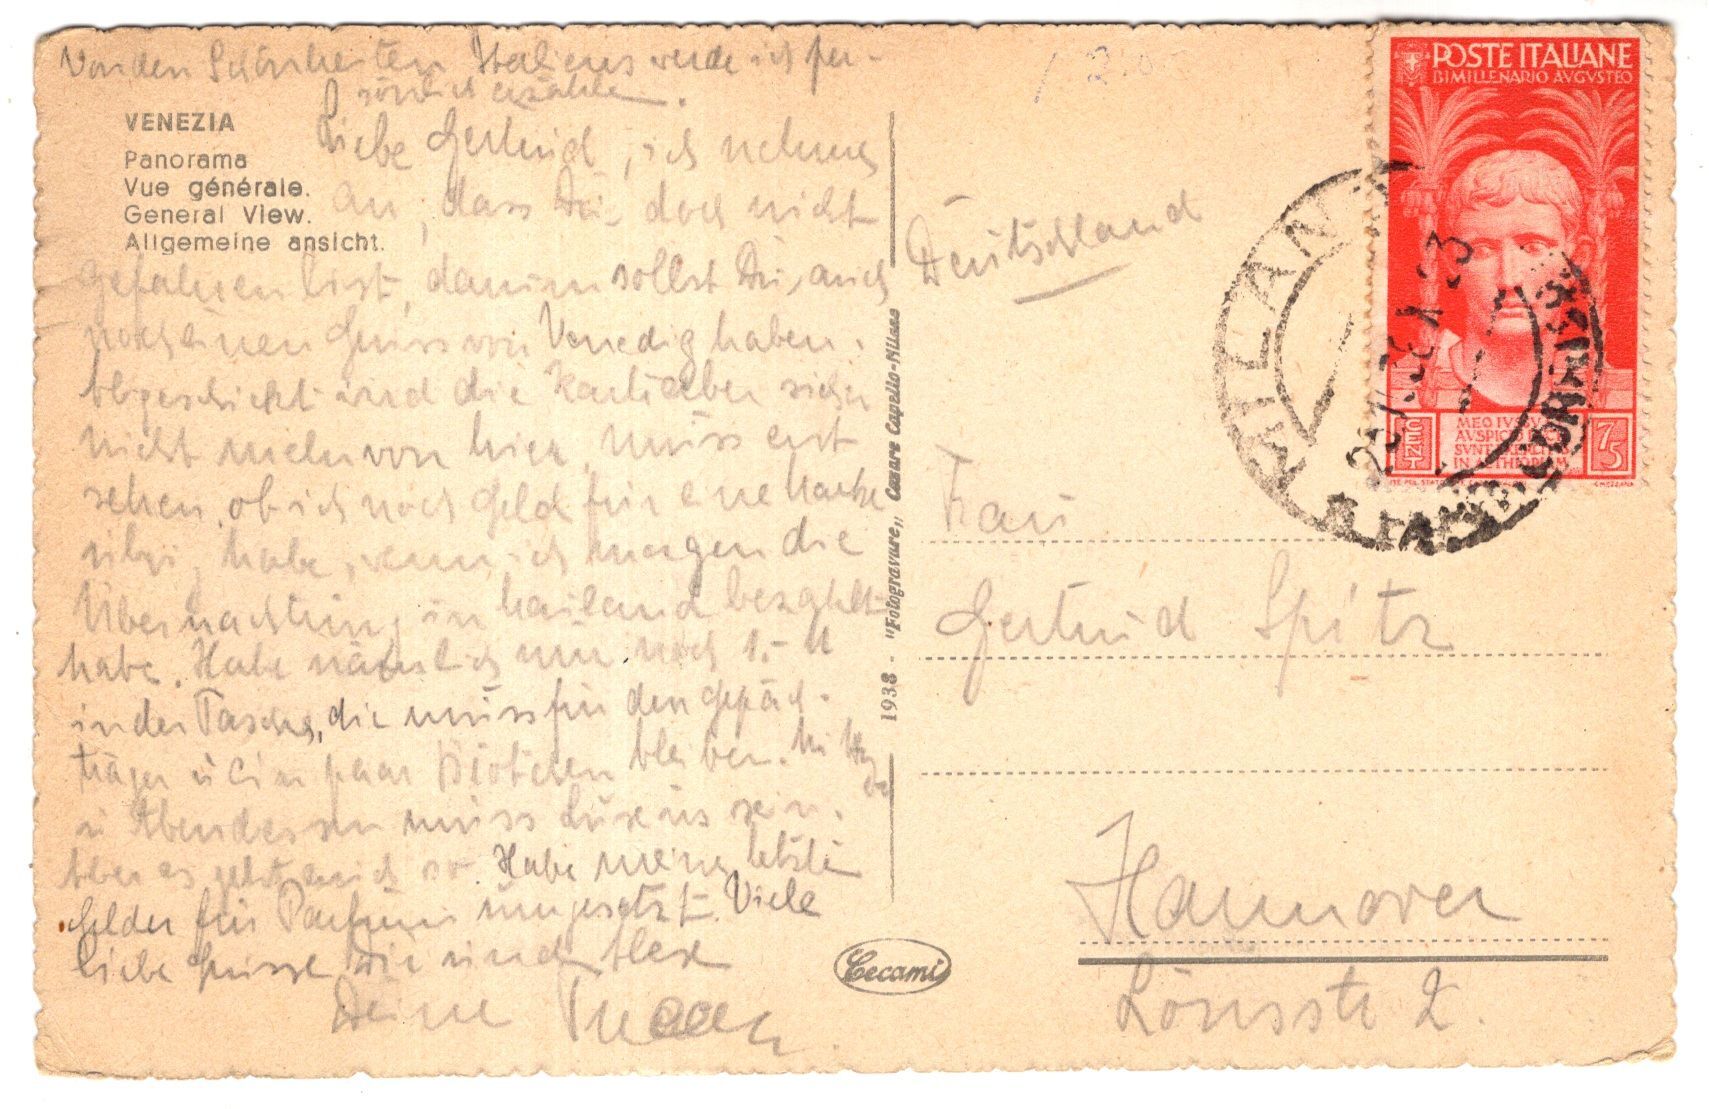 Von den Schönheiten Italiens werde ich per-
sönlich erzählen.
VENEZIA
Panorama
Vue générale.
General View.
Allgemeine ansicht.
Liebe Gertrud, ich nehme
an, dass Du doch nicht
gefahren bist, darum sollst Du auch
noch einen Gruss von Venedig haben.
Abgeschickt wird die Karte aber sicher
nicht mehr von hier, muss erst
sehen, ob ich noch Geld für eine Marke
übrig habe, wenn ich morgen die
Übernachtung in Mailand bezahlt
habe. Habe nämlich nur noch 1.- M
in der Tasche, die muss für den Gepäck-
träger u. ein paar Brötchen bleiben.
u Abendessen muss Luxus sein.
Aber es geht auch so. Habe meine letzten
Gelder für Parfum umgesetzt. Viele
liebe Grüsse Dir und Alex
Deine
1938 - "Fotogravure,, Cesare Capello-Milano
Cecami
POSTE ITALIANE
BIMILLENARIO AVGVSTEO
CENT 75
MILANO
Deutschland
Frau
Gertrud Spitz
Hannover
Lönsstr 2.